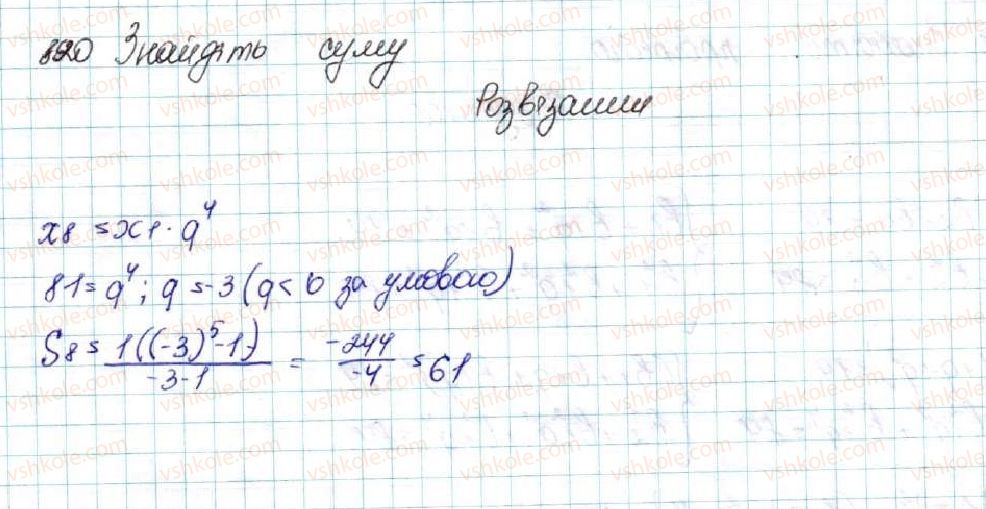 820 Знайдіть суму
Розв'язання
x8 = x1 · q^4
81 = q^4; q = -3 (q < 0 за умовою)
S8 = 1((-3)^5 - 1) / -3-1 = -244 / -4 = 61